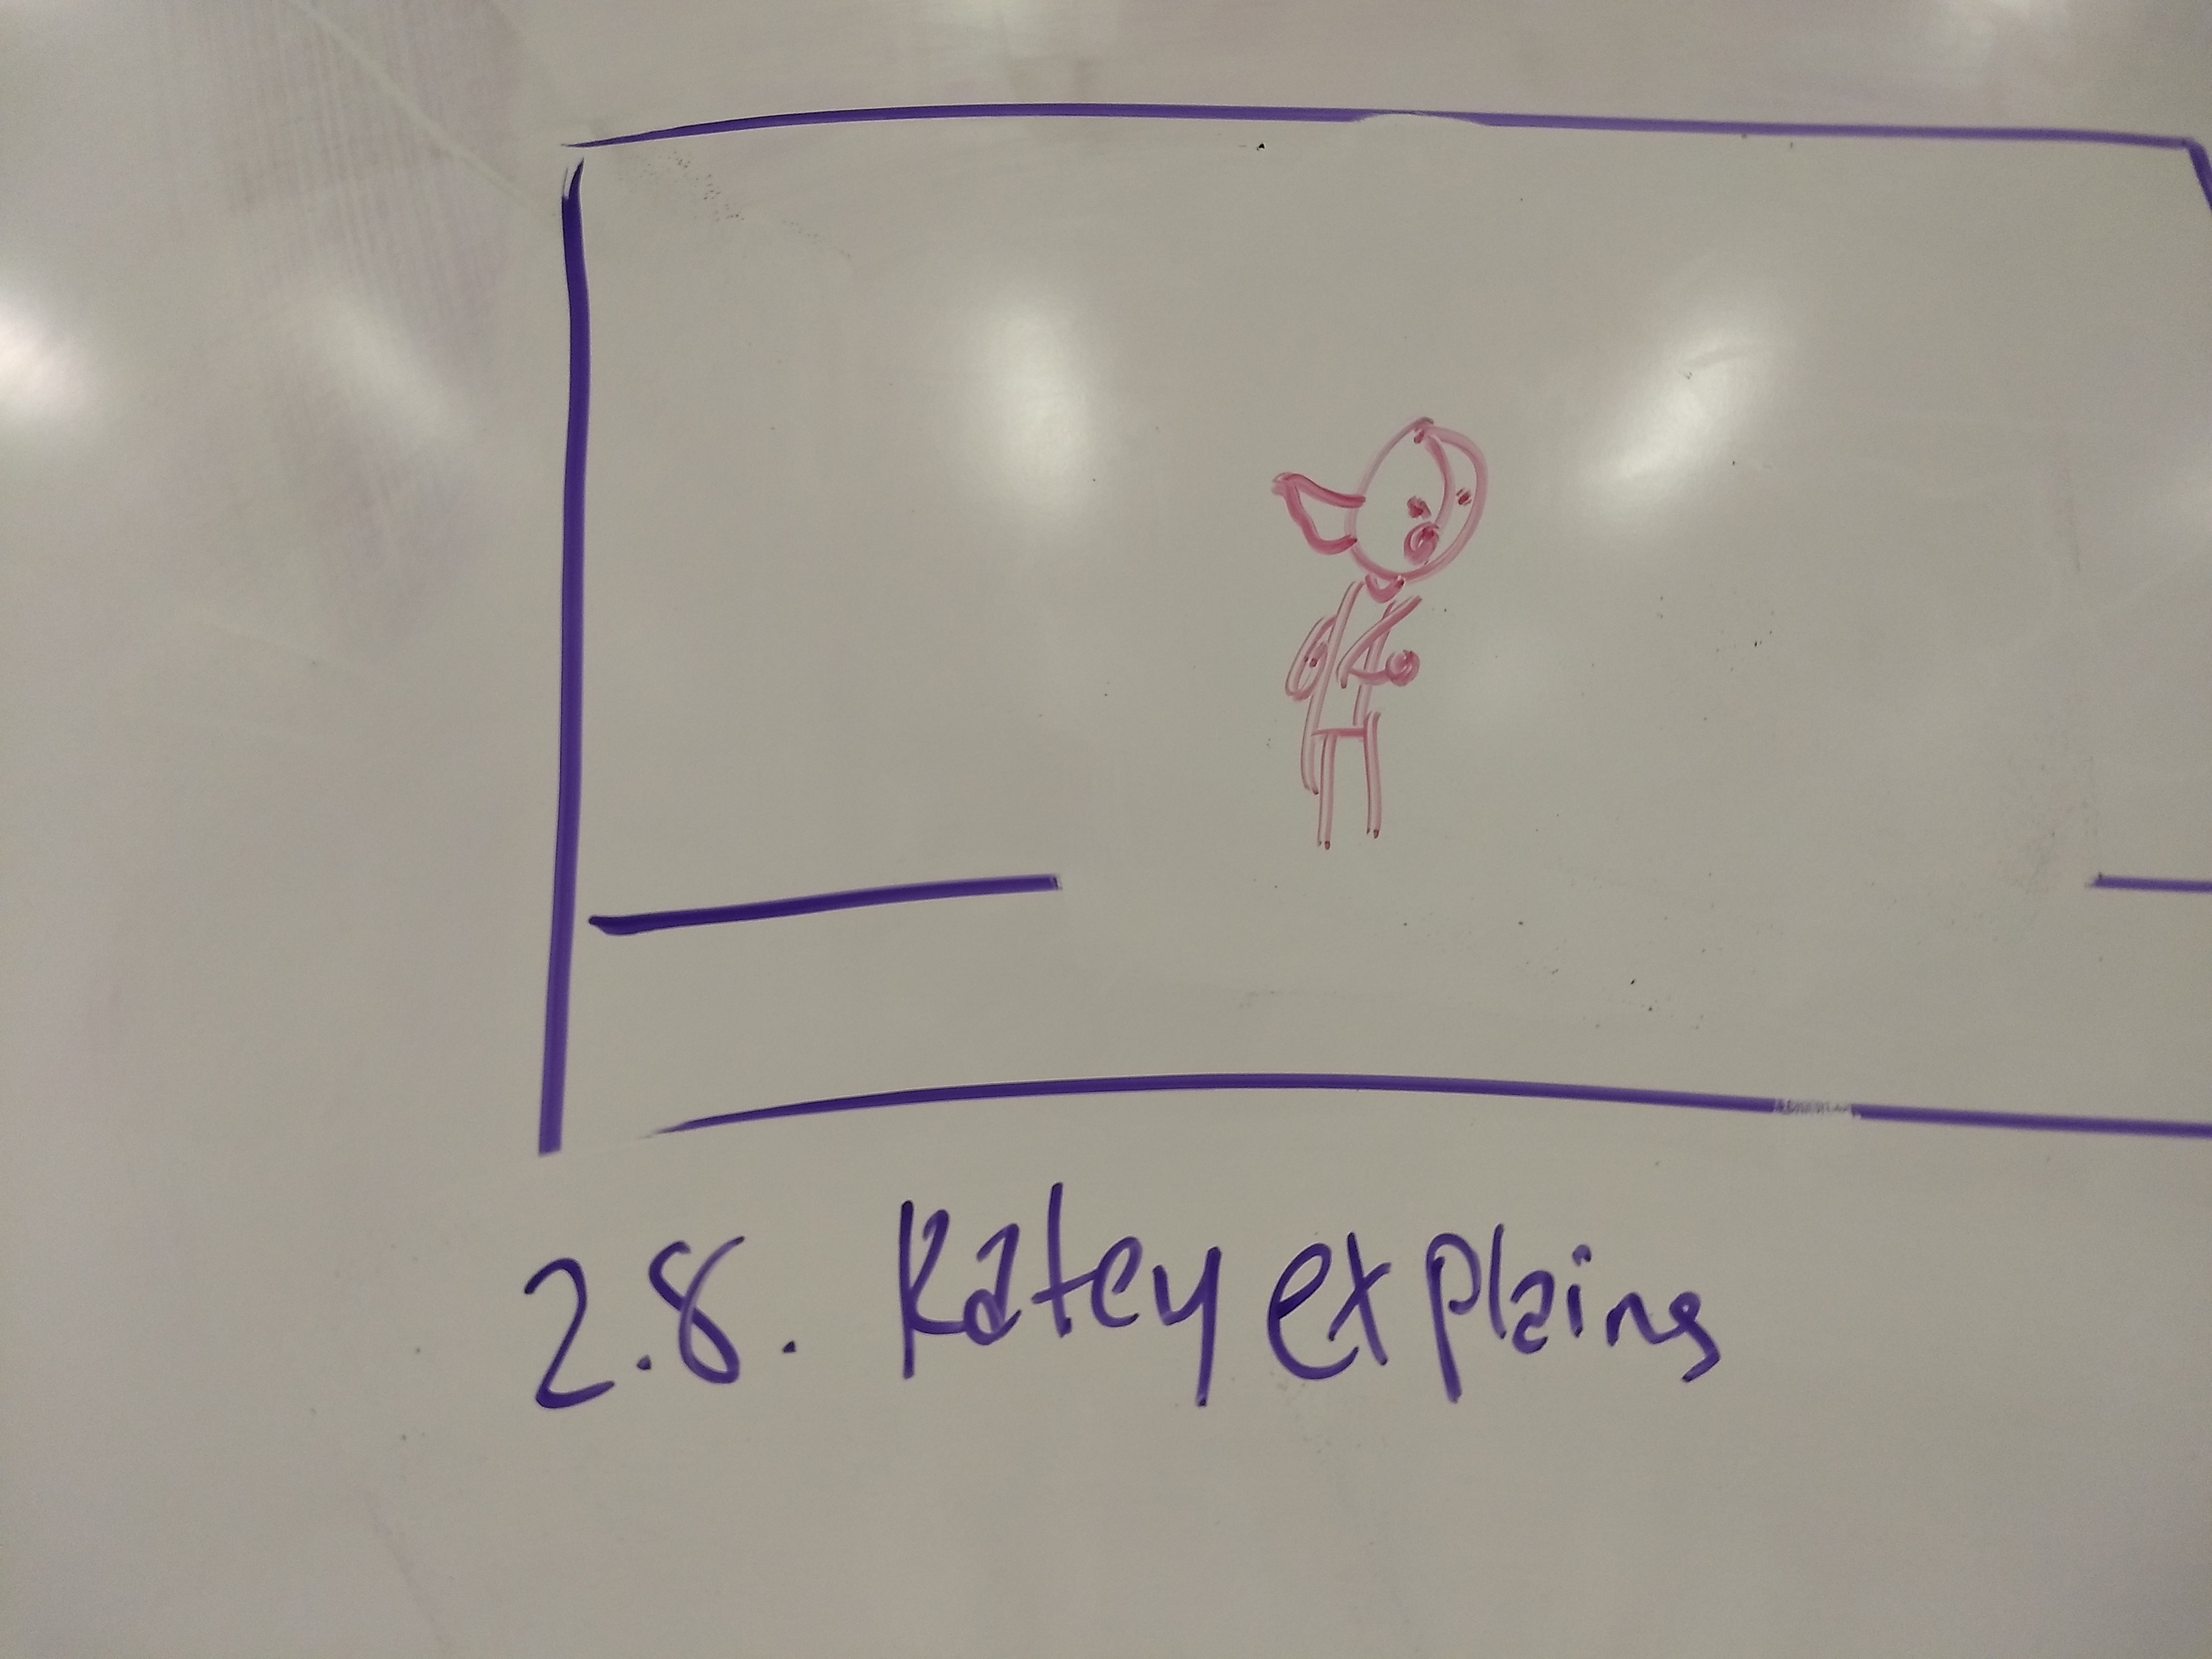 2.8. Katey explains